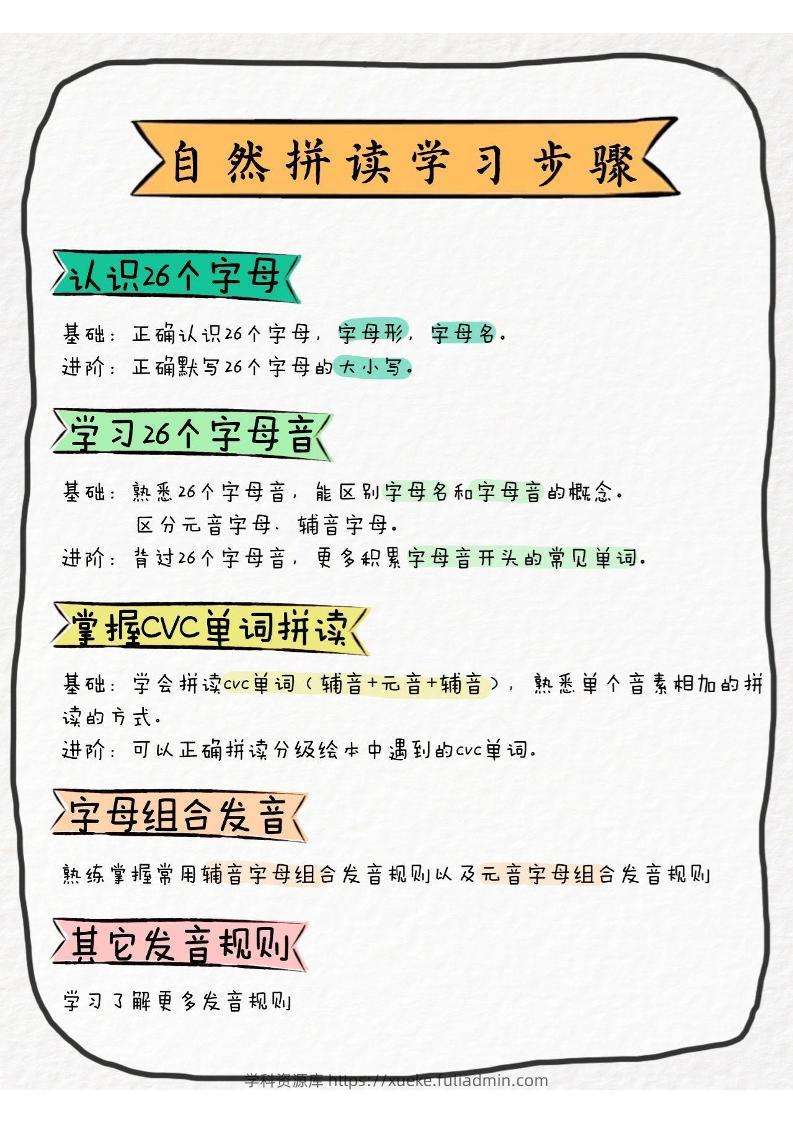 自然拼读学习步骤
认识26个字母
基础：正确认识26个字母，字母形，字母名。
进阶：正确默写26个字母的大小写。
学习26个字母音
基础：熟悉26个字母音，能区别字母名和字母音的概念。
区分元音字母、辅音字母。
进阶：背过26个字母音，更多积累字母音开头的常见单词。
掌握CVC单词拼读
基础：学会拼读cvc单词（辅音+元音+辅音），熟悉单个音素相加的拼
读的方式。
进阶：可以正确拼读分级绘本中遇到的cvc单词。
字母组合发音
熟练掌握常用辅音字母组合发音规则以及元音字母组合发音规则
其它发音规则
学习了解更多发音规则
学科资源库 https://xueke.fulladmin.com